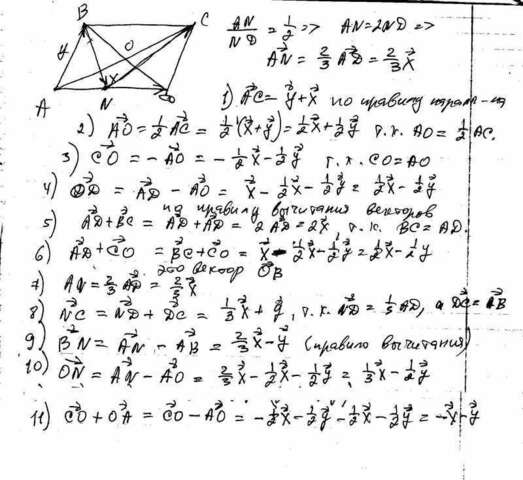 B C
y O
x
A N D
AN/ND = 1/2 => AN = 2ND =>
AN = 2/3 AD = 2/3 x
1) AC = y + x по правилу парал-ма
2) AO = 1/2 AC = 1/2 (x + y) = 1/2 x + 1/2 y т.к. AO = 1/2 AC.
3) CO = - AO = - 1/2 x - 1/2 y т.к. CO = AO
4) OD = AD - AO = x - 1/2 x - 1/2 y = 1/2 x - 1/2 y
по правилу вычитания векторов
5) AD + BC = AD + AD = 2 AD = 2x, т.к. BC = AD.
6) AD + CO = BC + CO = x - 1/2 x - 1/2 y = 1/2 x - 1/2 y
это вектор OB
7) AN = 2/3 AD = 2/3 x
8) NC = ND + DC = 1/3 x + y, т.к. ND = 1/3 AD, а DC = AB
9) BN = AN - AB = 2/3 x - y (правило вычитания)
10) ON = AN - AO = 2/3 x - 1/2 x - 1/2 y = 1/3 x - 1/2 y
11) CO + OA = CO - AO = - 1/2 x - 1/2 y - 1/2 x - 1/2 y = - x - y